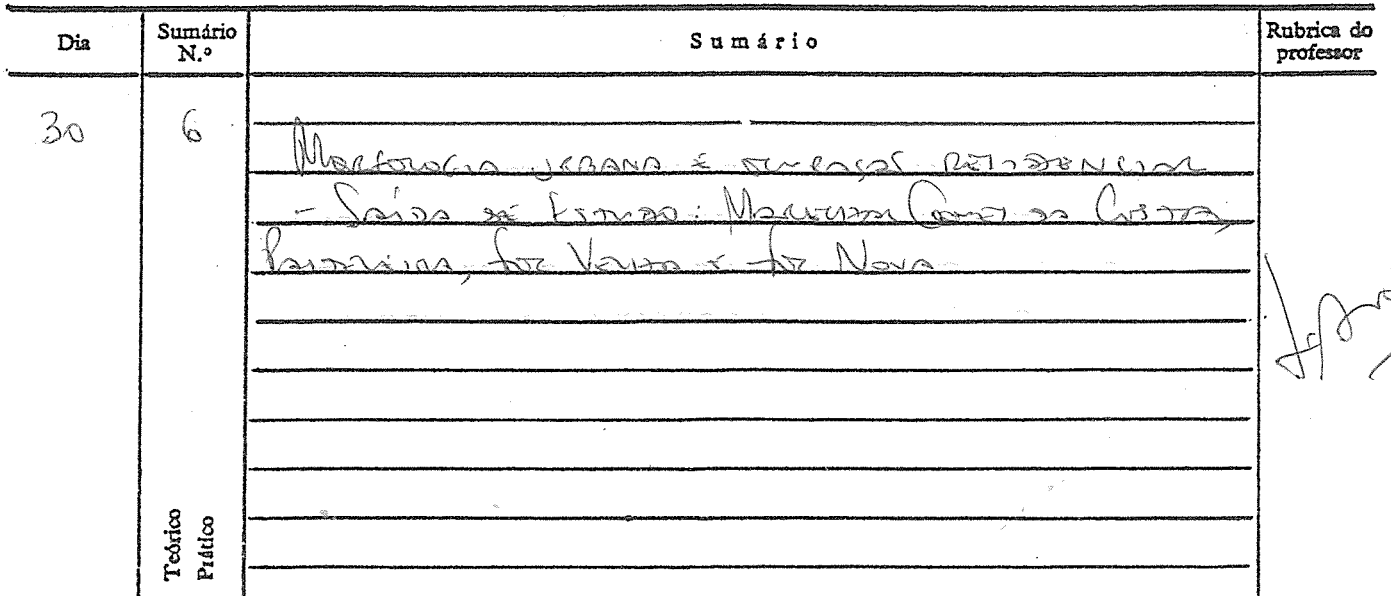 Dia
Sumário N.º
Sumário
Rubrica do professor
30
6
Morfologia urbana e residencial
- Saída de Estudo: Marechal Gomes da Costa,
Pasteleira, Foz Velha e Foz Nova
Teórico
Prático